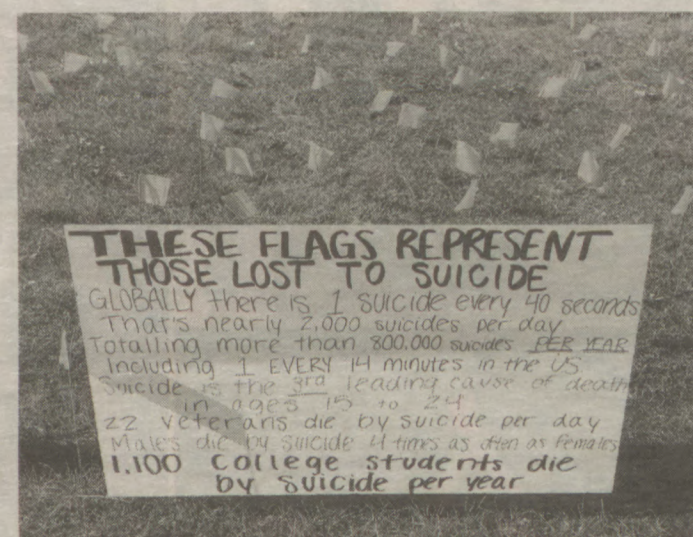 THESE FLAGS REPRESENT
THOSE LOST TO SUICIDE
GLOBALLY there is 1 suicide every 40 seconds
That's nearly 2,000 suicides per day
Totalling more than 800,000 suicides PER YEAR
Including 1 EVERY 14 minutes in the US
Suicide is the 3rd leading cause of death
in ages 15 to 24
22 veterans die by suicide per day
Males die by suicide 4 times as often as females
1,100 College students die
by suicide per year